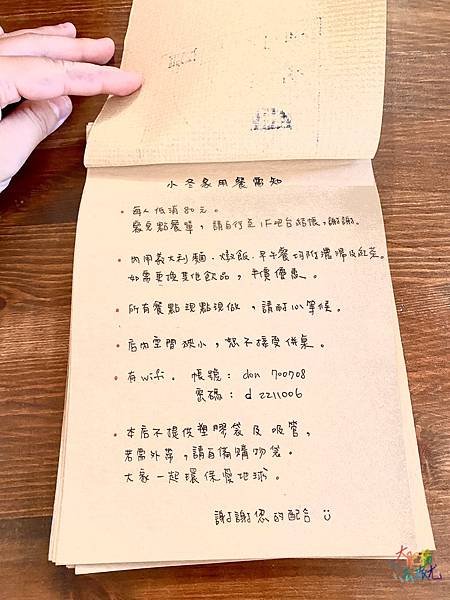 小冬多用餐需知
• 每人低消80元。
寫完點餐單，請自行至1F吧台結帳，謝謝。
• 內用義大利麵、燉飯、早午餐均附濃湯及紅茶。
如需更換其他飲品，半價優惠。
• 所有餐點現點現做，請耐心等候。
• 店內空間狹小，恕不接受併桌。
• 有wifi。 帳號：don 700708
密碼：d 2211006
• 本店不提供塑膠袋及吸管，
若需外帶，請自備購物袋。
大家一起環保愛地球。
謝謝您的配合